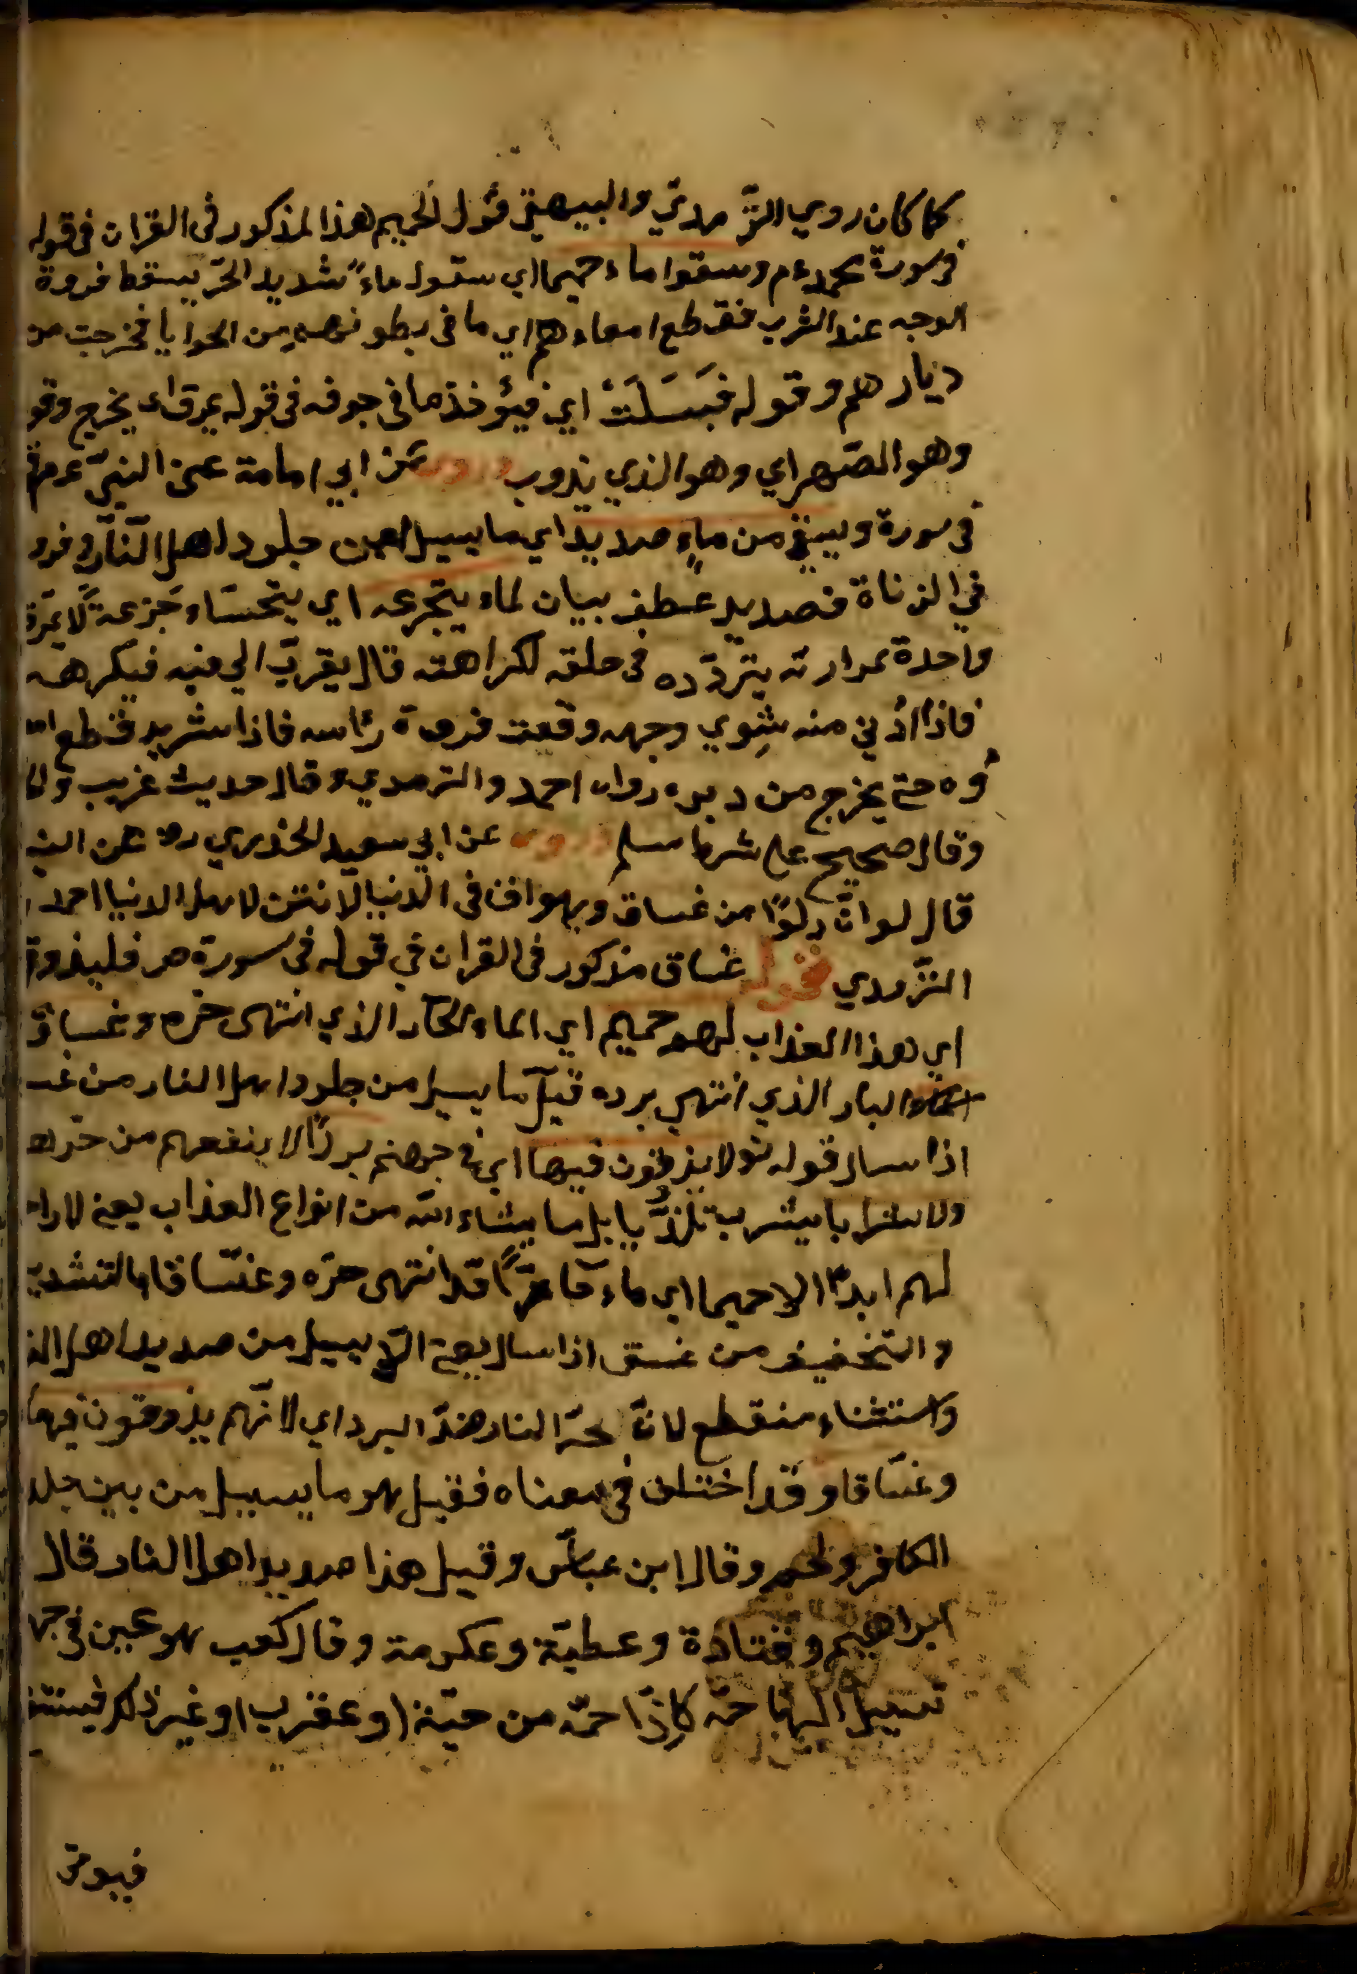 كما كان روي الترمدي والبيهقي قوله الحميم هذا المذكور في القران في قوله
في سورة محمد عم وسقوا ماء حميما اي سقوا ماء شديد الحر يسقط فروة
الوجه عند الشرب فقطع امعاءهم اي ما في بطونهم من الحوايا فخرجت من
ديارهم وقوله فَيَسْلَتُ اي فيؤخذ ما في جوفه في قوله يمرق اي يخرج وقو
وهو الصهر اي وهو الذي يذوب وروي عن ابي امامة عن النبي عم
في سورة ويسقى من ماء صديد اي ما يسيل من جلود اهل النار وفرو
في الزناة فصديد عطف بيان لماء يتجرعه اي يتحساء جرعة لا بمرة
واحدة لمرارته يتردده في حلقه لكراهته قال يقرب الي فيه فيكرهه
فاذا ادني منه شوي وجهه وقعت فروة راسه فاذا شربه قطع
وه حتى يخرج من دبره رواه احمد والترمدي وقال حديث غريب
وقال صحيح على شرط مسلم وروي عن ابي سعيد الخدري رض عن النبي
قال لو ان دلوا من غساق يهراق في الدنيا لانتن لاهل الدنيا احمد
الترمدي فقوله غساق مذكور في القران في قوله في سورة ص فليذوقو
اي هذا العذاب لهو حميم اي الماء الحار الذي انتهى حره وغساق
البار الذي انتهى برده قيل ما يسيل من جلود اهل النار من غس
اذا سال قوله تع لا يذوقون فيها اي في جهنم بردا لا ينفعهم من حره
ولا شرابا يشرب تلذذيا بل ما يشاء الله من انواع العذاب يعني
لهم ابدا الا حميما اي ماء حارا قد انتهى حره وغساقا بالتشديد
والتخفيف من غسق اذا سال يعني يسيل من صديد اهل الن
واستثناء منقطع لان لحر النار ضد البرد اي لانهم يذوقون فيها
وغساقا وقد اختلف في معناه فقيل هو ما يسيل من بين جلد
الكافر ولحمه وقال ابن عباس وقيل هذا صديد اهل النار قال
ابراهيم وقتادة وعطية وعكرمة وقال كعب هو عين في جه
تسيل اليها حمة كل ذا حمة من حية او عقرب او غير ذلك فيستنقع
فيوتى